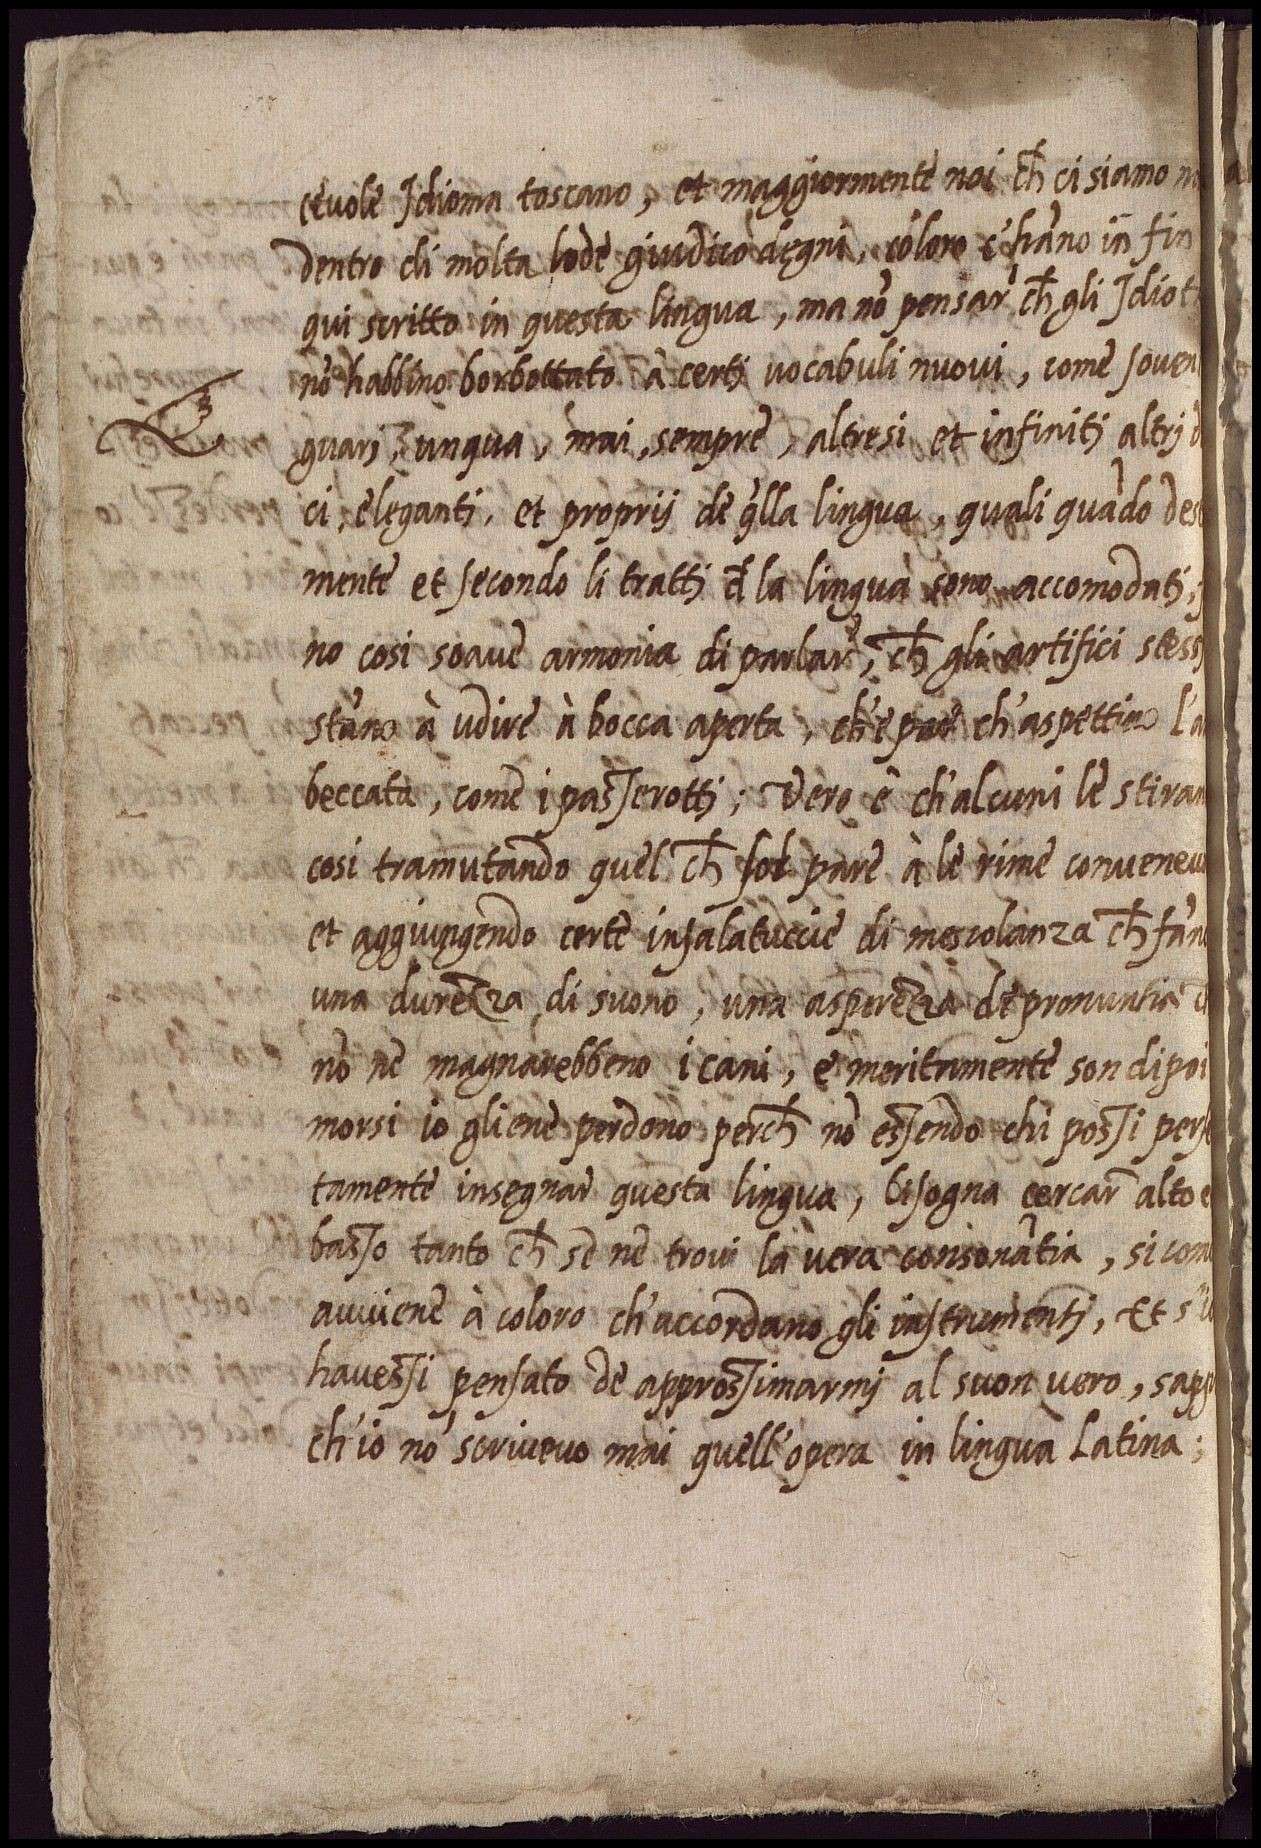 cevole Idioma toscano, et maggiormente noi ch̄ ci siamo
dentro di molta lode giudico dẹgni, coloro c'hãno in fin
qui scritto in questa lingua, ma nõ pensar ch̄ gli Idioti
nõ habbino borbottato à certi vocabuli nuovi, come soven
guari, unqua, mai, sempre, altresi et infiniti altri d
ci, eleganti, et proprij de q̃lla lingua, quali quãdo des
mente et secondo li tratti d̄ la lingua sono accomodati,
no cosi soave armonia di parlar, ch̄ gli artifici stess
stãno à udire à bocca aperta, ch'e par ch'aspettino l'
beccata, come i passerotti; Vero è ch'alcuni le stiran
cosi tramutando quel ch̄ sol pare à le rime conveneu
et aggiungendo certe insalatuccie di mescolanza ch̄ fãn
una durezza di suono, una asperezza de pronuntia
nõ ne magnarebbeno i cani, e meritamente son di poi
morsi io gliene perdono perch̄ nõ essendo chi possi perf
tamente insegnar questa lingua, bisogna cercar alto e
basso tanto ch̄ se ne trovi la vera consonãtia, si com
avviene à coloro ch'accordano gli instrumenti, Et s'
havessi pensato de approssimarmi al suon vero, sapp
ch'io nõ scrivevo mai quell'opera in lingua Latina;